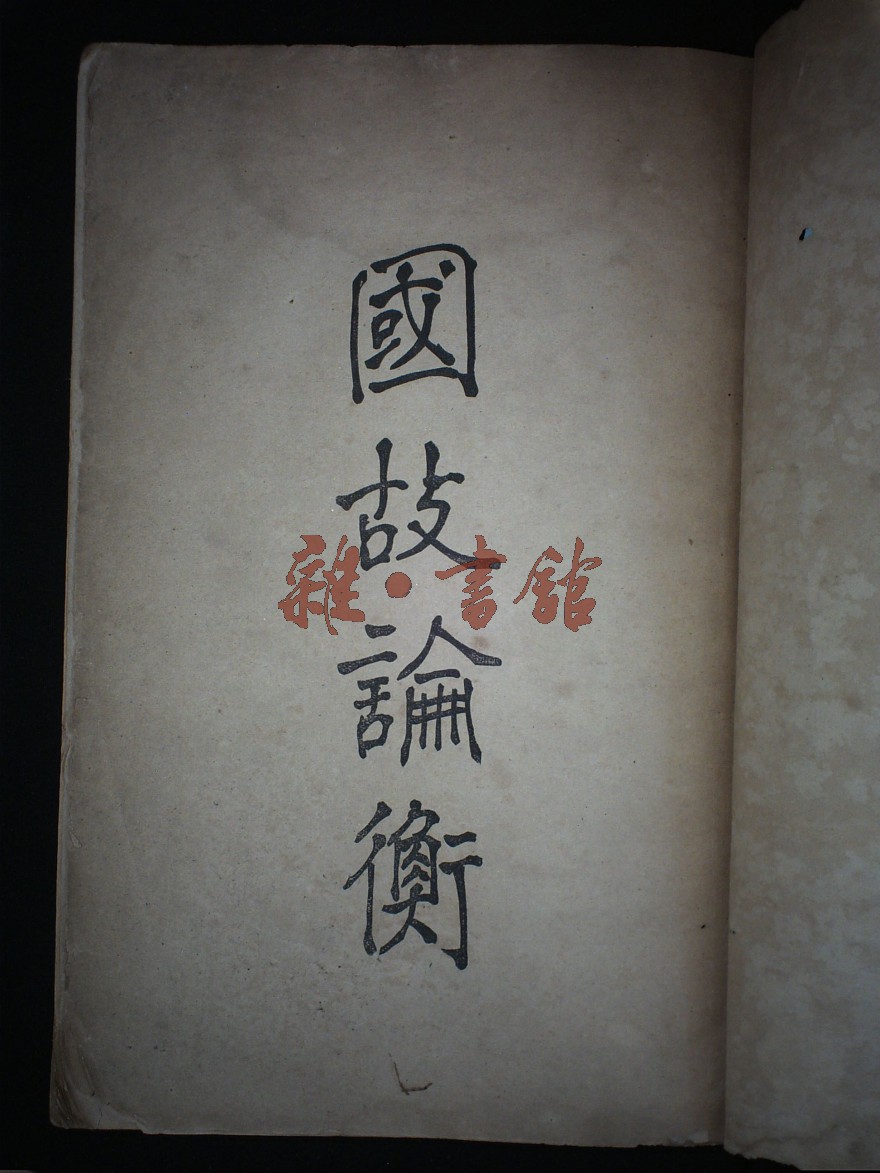 國故論衡
雜·書館